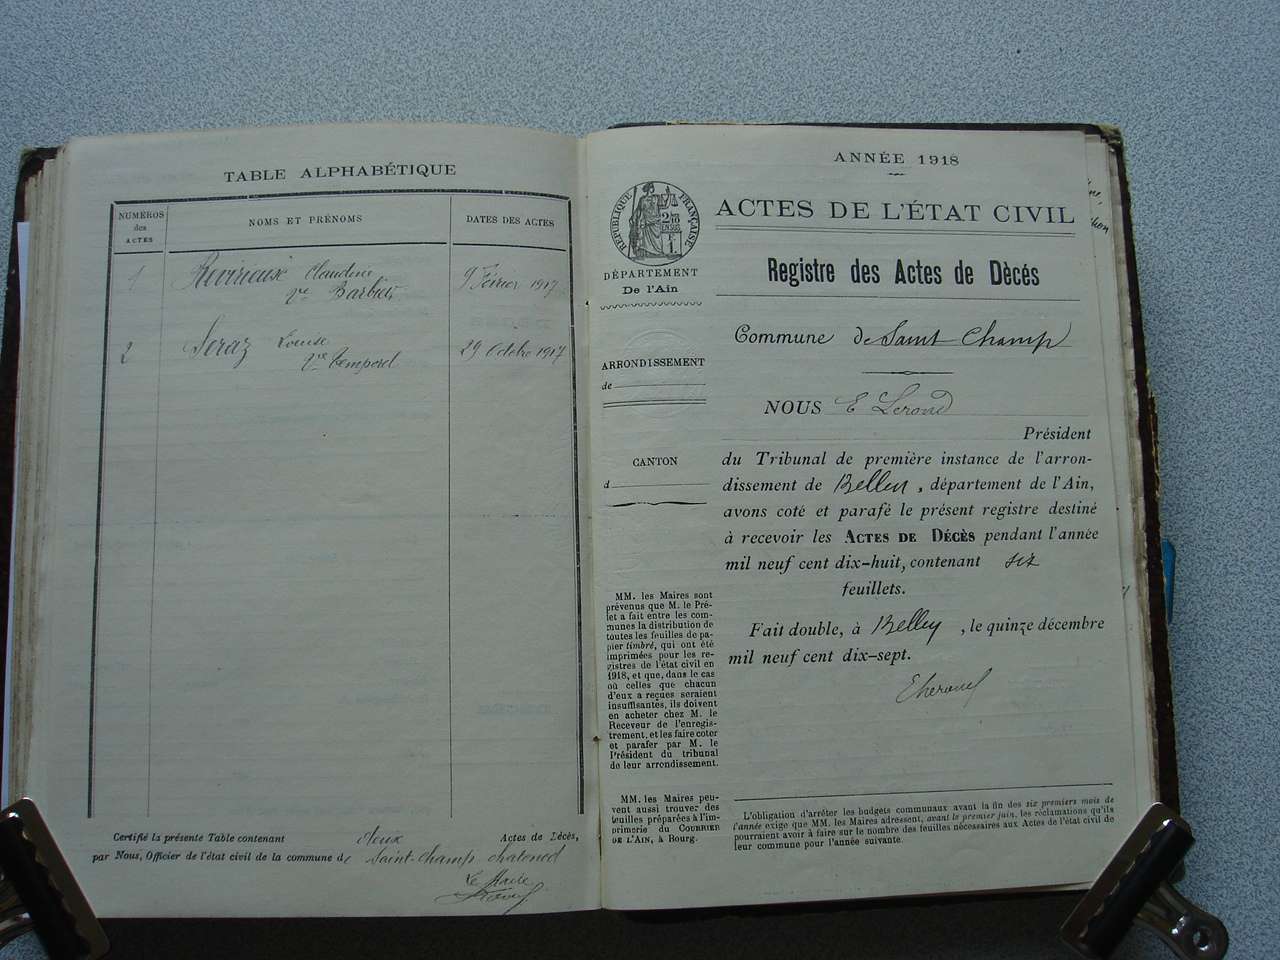 TABLE ALPHABÉTIQUE
NUMÉROS des ACTES
NOMS ET PRÉNOMS
DATES DES ACTES
1 Claudine 9 Février 1917
Vve Barbier
2 Seraz Louise 29 Octobre 1917
Vve Temporel
Certifié la présente Table contenant deux Actes de Décès,
par Nous, Officier de l'état civil de la commune de Saint-Champ chatonod
Le Maire
ANNÉE 1918
RÉPUBLIQUE FRANÇAISE
ACTES DE L'ÉTAT CIVIL
DÉPARTEMENT
De l'Ain
Registre des Actes de Dècés
Commune de Saint Champ
ARRONDISSEMENT
de
NOUS E
Président
CANTON
d
du Tribunal de première instance de l'arron-
dissement de Belley, département de l'Ain,
avons coté et parafé le présent registre destiné
à recevoir les ACTES DE DÉCÈS pendant l'année
mil neuf cent dix-huit, contenant six
feuillets.
Fait double, à Belley, le quinze décembre
mil neuf cent dix-sept.
MM. les Maires sont
prévenus que M. le Pré-
fet a fait entre les com-
munes la distribution de
toutes les feuilles de pa-
pier timbré, qui ont été
imprimées pour les re-
gistres de l'état civil en
1918, et que, dans le cas
où celles que chacun
d'eux a reçues seraient
insuffisantes, ils doivent
en acheter chez M. le
Receveur de l'enregis-
trement, et les faire coter
et parafer par M. le
Président du tribunal
de leur arrondissement.
MM. les Maires peu-
vent aussi trouver des
feuilles préparées à l'im-
primerie du COURRIER
DE L'AIN, à Bourg.
L'obligation d'arrêter les budgets communaux avant la fin des six premiers mois de
l'année exige que MM. les Maires adressent, avant le premier juin, les réclamations qu'ils
pourraient avoir à faire sur le nombre des feuilles nécessaires aux Actes de l'état civil de
leur commune pour l'année suivante.